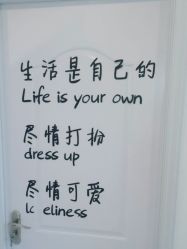 生活是自己的
Life is your own
尽情打扮
dress up
尽情可爱
eliness